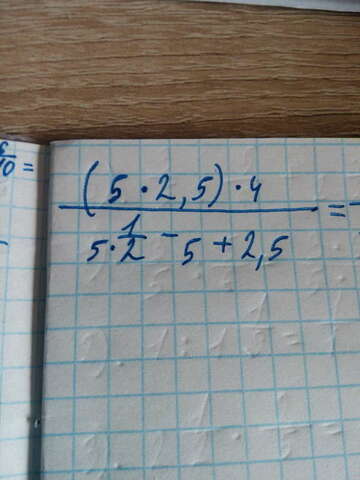 6/10 =
(5 · 2,5) · 4
5 · 1/2 - 5 + 2,5 =